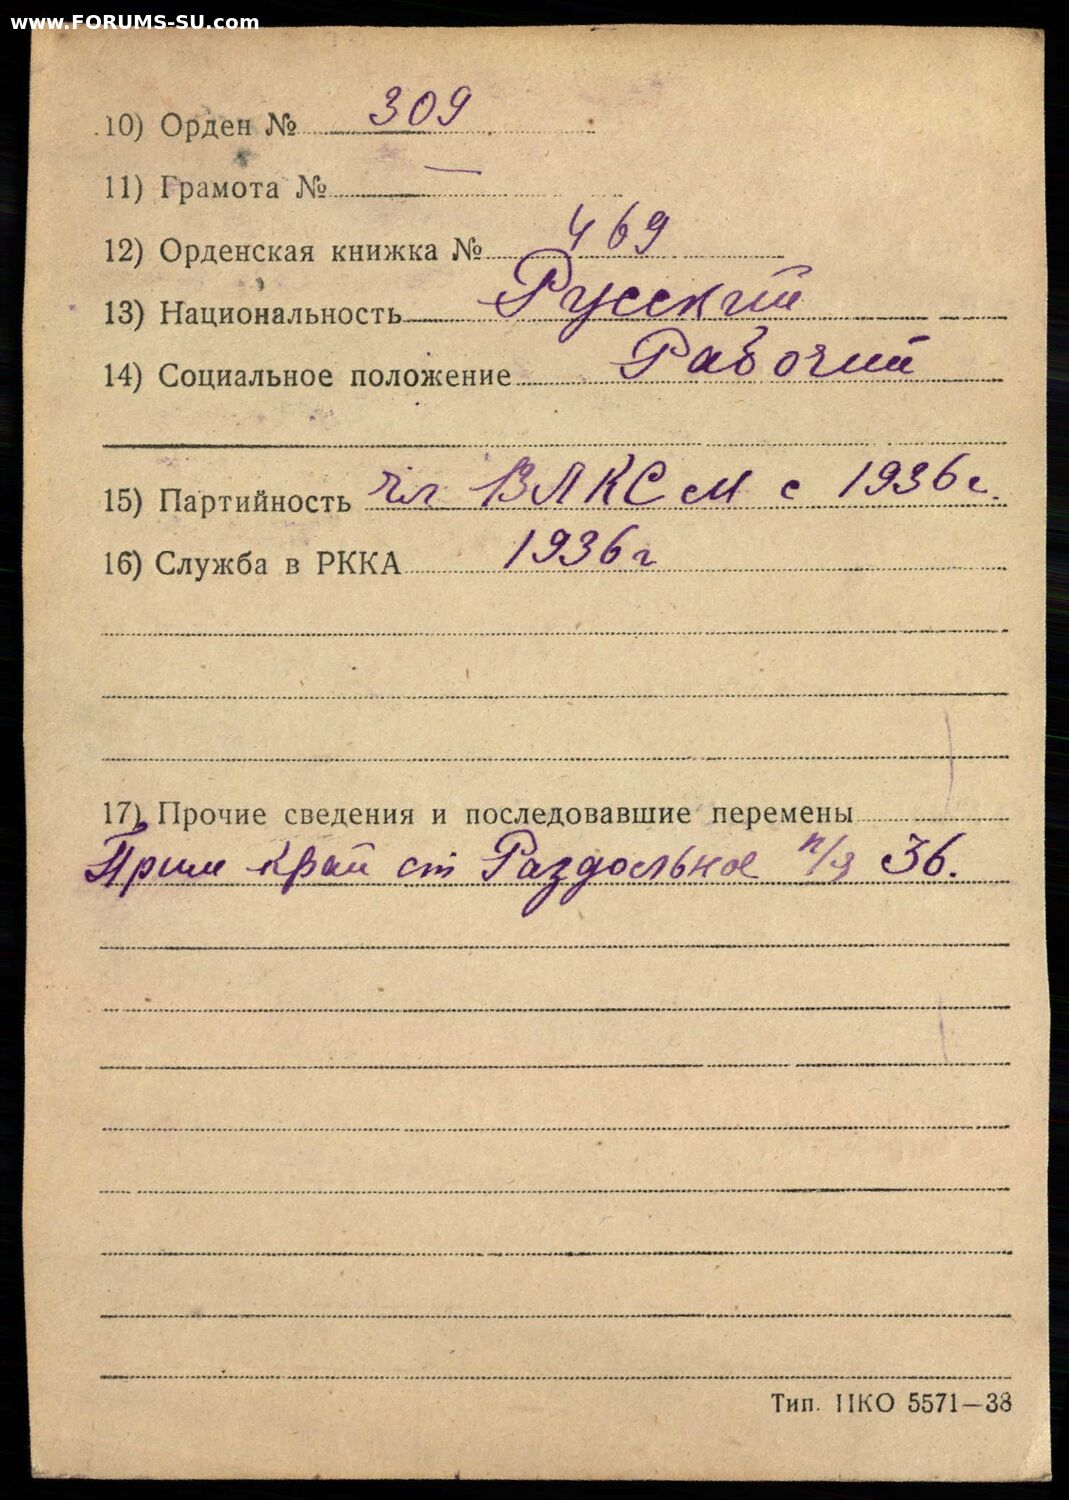 www.FORUMS-SU.com
10) Орден № 309
11) Грамота № —
12) Орденская книжка № 469
13) Национальность Русский
14) Социальное положение Рабочий
15) Партийность чл ВЛКСМ с 1936 г.
16) Служба в РККА 1936 г
17) Прочие сведения и последовавшие перемены
Прим край ст Раздольное п/я 36.
Тип. НКО 5571—38